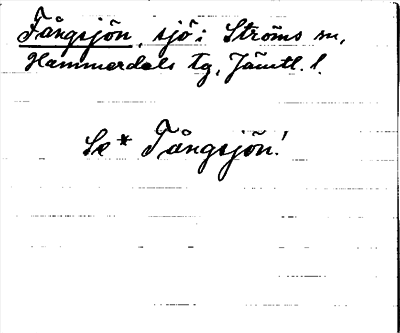 Fångsjön, sjö i Ströms sn,
Hammerdals tg, Jämtl. l.
Se * Tångsjön!